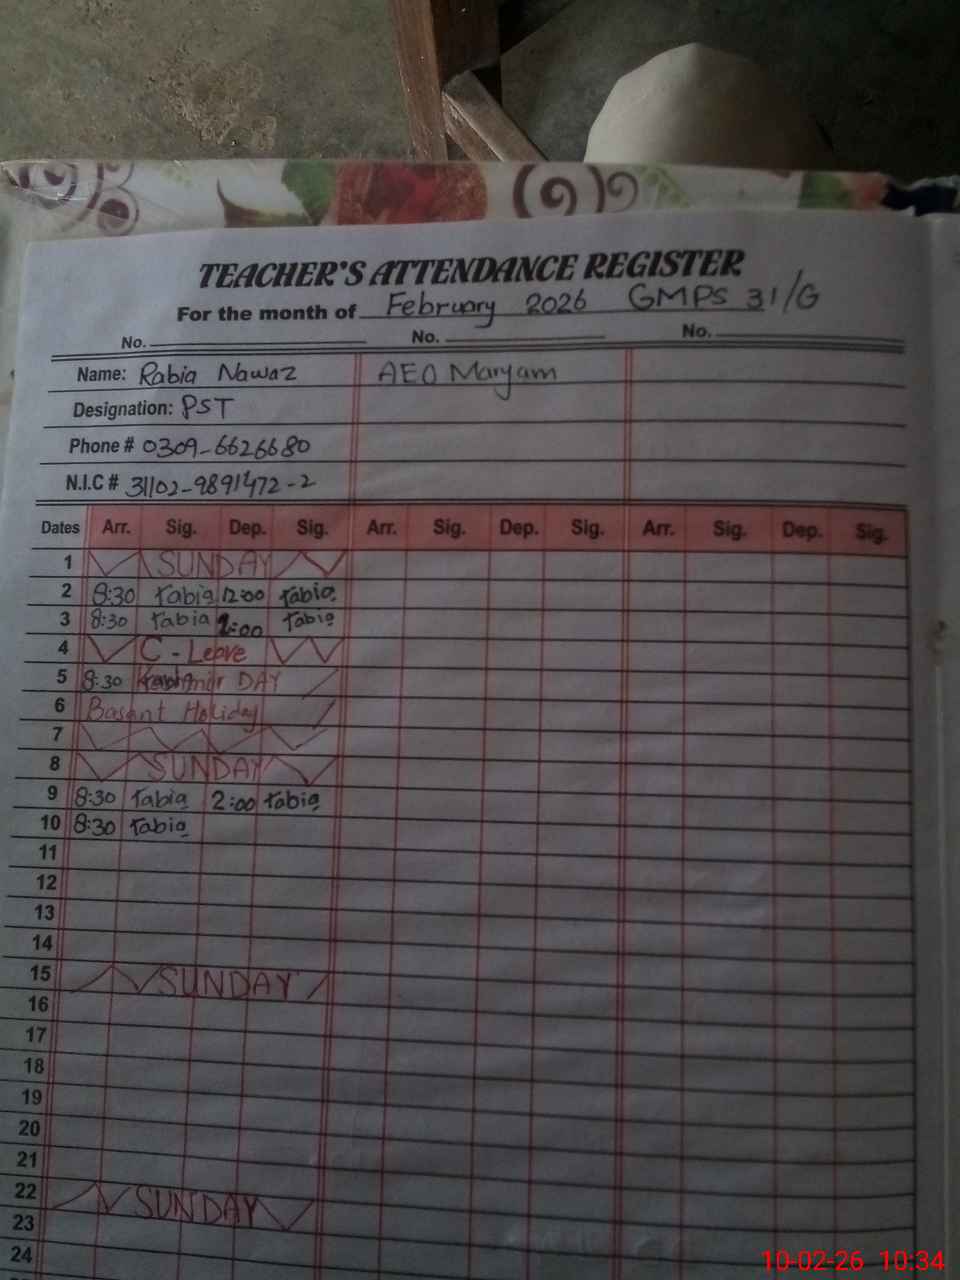 TEACHER'S ATTENDANCE REGISTER
For the month of February 2026 GMPS 31/G
No. No. No.
Name: Rabia Nawaz AEO Maryam
Designation: PST
Phone # 0309-6626680
N.I.C # 31102-9891472-2
Dates Arr. Sig. Dep. Sig. Arr. Sig. Dep. Sig. Arr. Sig. Dep. Sig.
1 SUNDAY
2 8:30 rabia 12:00 rabia
3 8:30 rabia 2:00 rabia
4 C - Leave
5 8:30 Kashmir DAY
6 Basant Holiday
7
8 SUNDAY
9 8:30 rabia 2:00 rabia
10 8:30 rabia
11
12
13
14
15 SUNDAY
16
17
18
19
20
21
22 SUNDAY
23
24
10-02-26 10:34